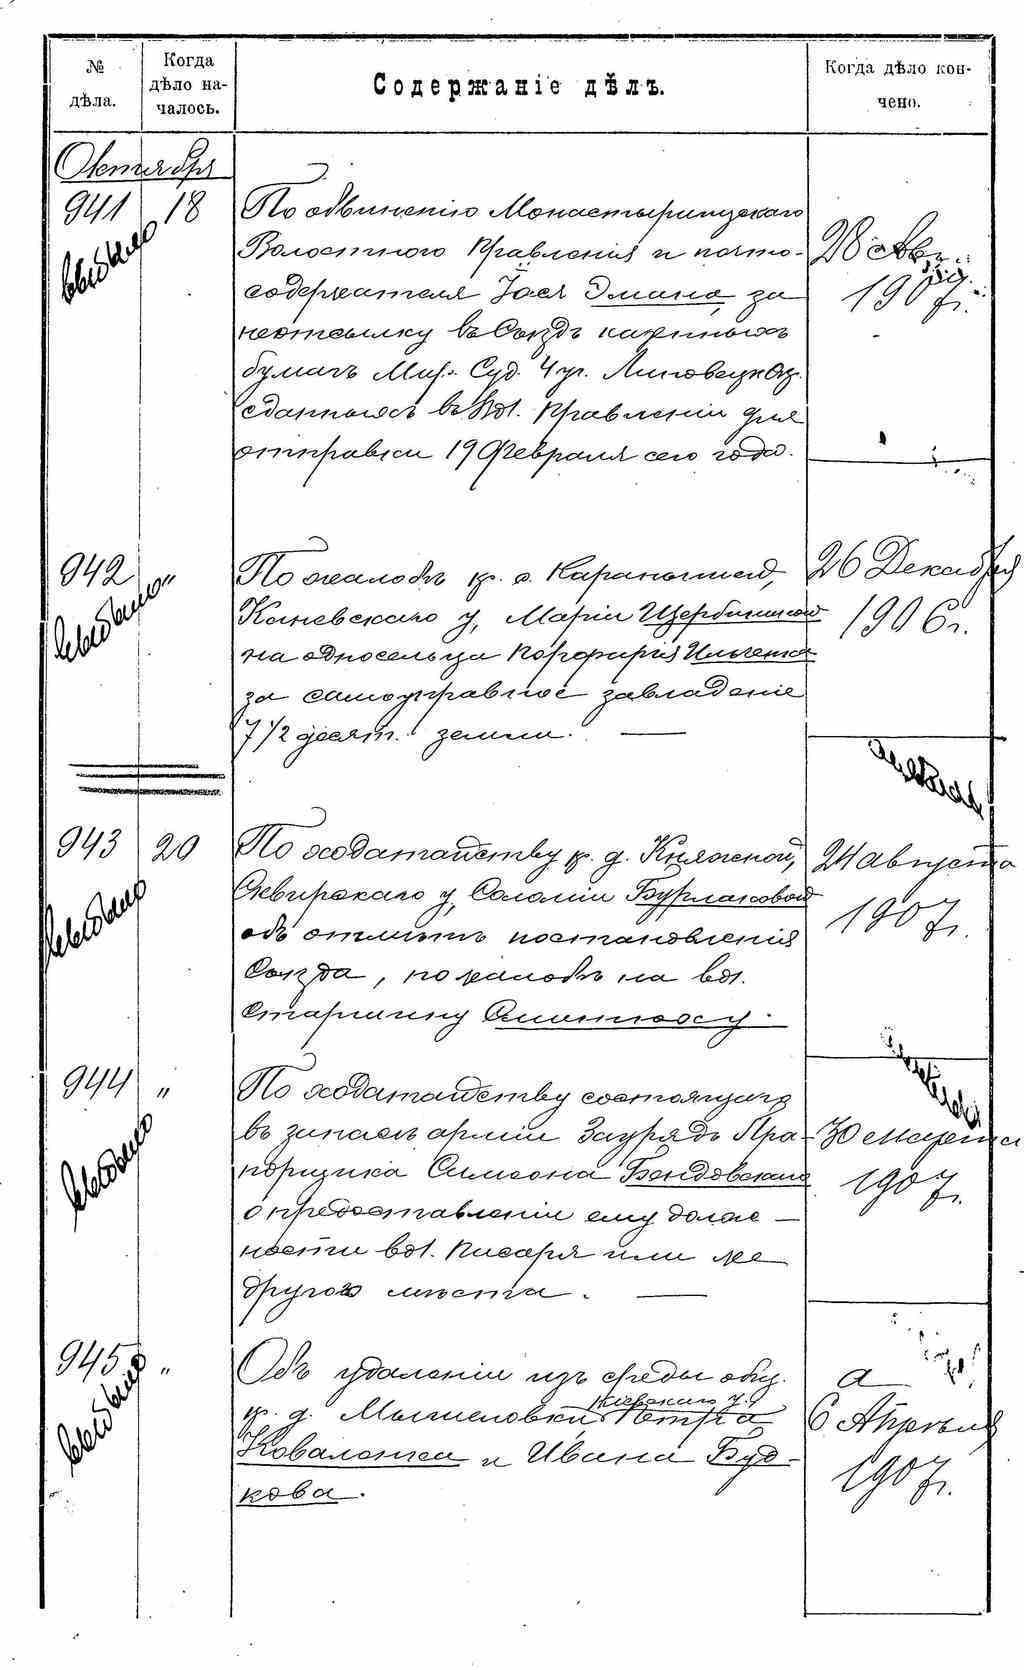 № дѣла.
Когда дѣло началось.
Содержаніе дѣлъ.
Когда дѣло кончено.
Октября
941 18 По обвиненію Монастырищскаго
Волостного Правленія и почто-
содержателя Іося Эмана, за
неотсылку въ Съѣздъ казенныхъ
бумагъ Мир. Суд. 4 уч. Липовецк.
сданныхъ въ Вол. Правленіи для
отправки 19 Февраля сего года.
28
1907 г.
942 " По жалобѣ кр. с.
Каневскаго у, Маріи
на односельца Порфирія
за самоуправное завладеніе
7 1/2 десят. земли. —
26 Декабря
1906 г.
943 20 По ходатайству кр. д. Княжной,
Сквирскаго у, Соломіи Бурлаковой
объ отмѣнѣ постановленія
Съѣзда, по жалобѣ на вол.
Старшину
24 августа
1907 г.
944 " По ходатайству состоящаго
въ запасѣ арміи Зауряд Пра-
порщика Симеона Бендовскаго
о предоставленіи ему долж-
ности вол. Писаря или же
другого мѣста. —
30 марта
1907 г.
945 " Объ удаленіи изъ среды общ.
Кіевскаго у.
кр. д. Мышеловки, Петра
Коваленка и Ивана Буд-
кова.
6 Апрѣля
1907 г.